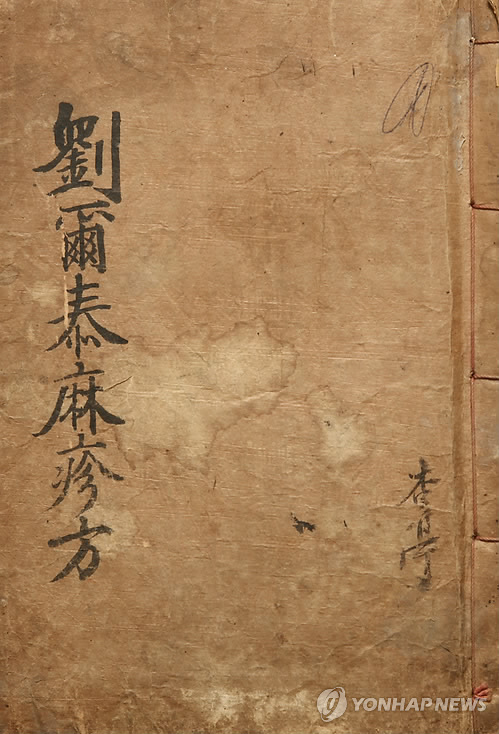 劉爾泰麻疹方
杏亭
YONHAPNEWS